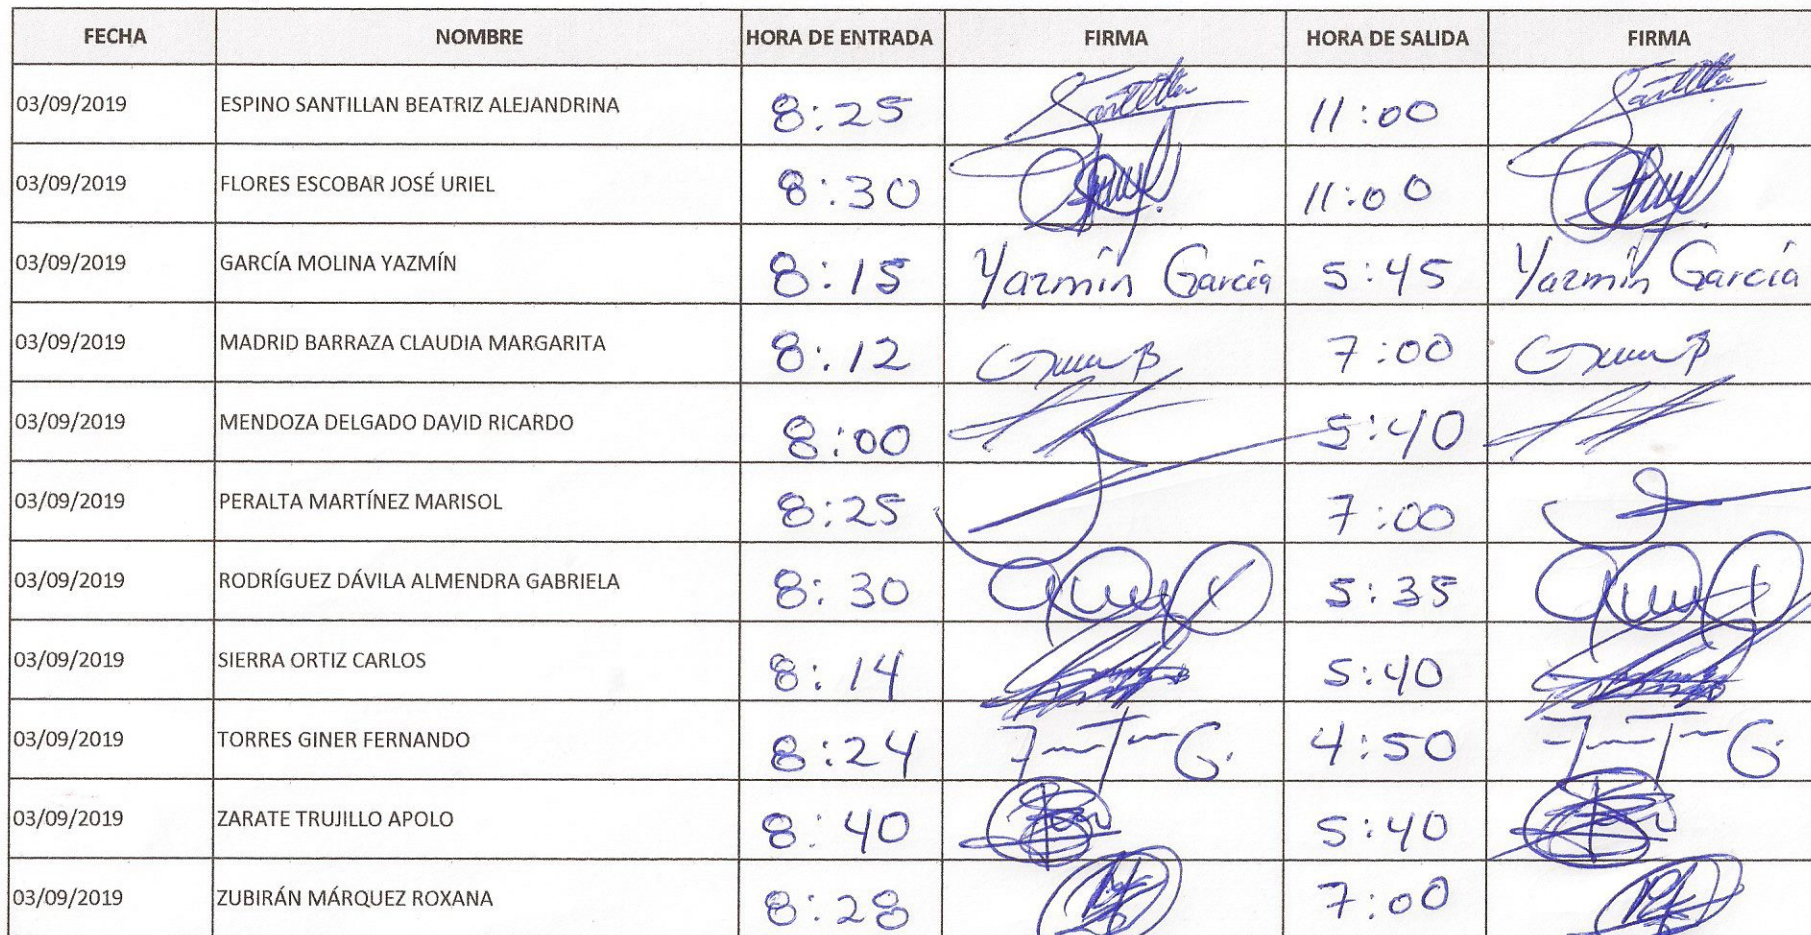 FECHA NOMBRE HORA DE ENTRADA FIRMA HORA DE SALIDA FIRMA
03/09/2019 ESPINO SANTILLAN BEATRIZ ALEJANDRINA 8:25 11:00
03/09/2019 FLORES ESCOBAR JOSÉ URIEL 8:30 11:00
03/09/2019 GARCÍA MOLINA YAZMÍN 8:15 Yazmín García 5:45 Yazmín García
03/09/2019 MADRID BARRAZA CLAUDIA MARGARITA 8:12 7:00
03/09/2019 MENDOZA DELGADO DAVID RICARDO 8:00 5:40
03/09/2019 PERALTA MARTÍNEZ MARISOL 8:25 7:00
03/09/2019 RODRÍGUEZ DÁVILA ALMENDRA GABRIELA 8:30 5:35
03/09/2019 SIERRA ORTIZ CARLOS 8:14 5:40
03/09/2019 TORRES GINER FERNANDO 8:24 4:50
03/09/2019 ZARATE TRUJILLO APOLO 8:40 5:40
03/09/2019 ZUBIRÁN MÁRQUEZ ROXANA 8:28 7:00